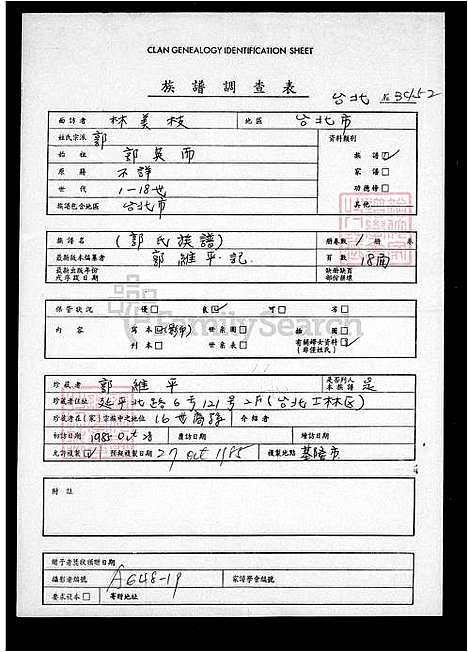 CLAN GENEALOGY IDENTIFICATION SHEET
族譜調查表
台北 № 35152
面訪者 林美枝 地區 台北市
姓氏宗派 郭 資料類別
始祖 郭奐而 族譜☑
原籍 不詳 家譜□
世代 1-18世 功德榜□
族譜包含地區 台北市 其他
族譜名 (郭氏族譜) 冊卷數 1 冊 卷
最新版本編纂者 郭維平記 頁數 18面
最新出版年份 或序跋日期 缺冊缺頁 部份損壞
保管狀況 優□ 良☑ 可□ 劣□
內容 寫本☑(影印) 世系圖□ 插圖□
刊本□ 世系表□ 有關婦女資料☑ (非僅姓氏)
FamilySearch
珍藏者 郭維平 是否列入 本族譜 是
珍藏者住址 延平北路6号121号2F(台北士林區)
珍藏者在(家)宗族中之地位 16世裔孫 介紹者
初訪日期 1985 Oct 應訪日期 續訪日期
允許複製☑ 預擬複製日期 27 Oct 1985 複製地點 基隆市
附註
贈予者獎狀頒贈日期
攝影者編號 A648-19 家譜學會編號
要求從本□ 寄附地址